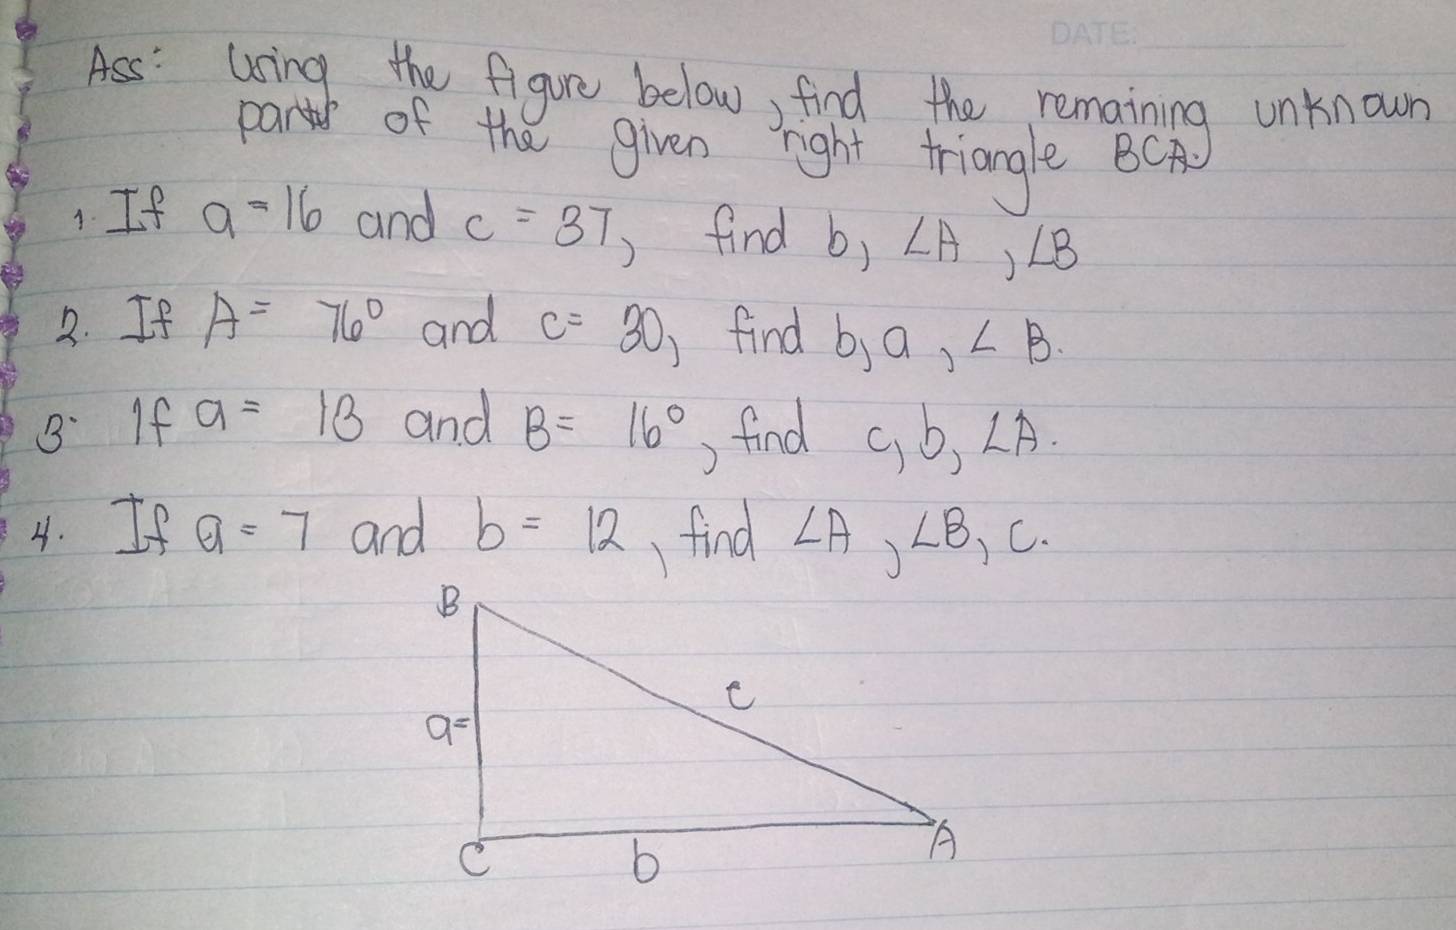 DATE:
Ass: Using the figure below, find the remaining unknown
parts of the given right triangle BCA.
1. If a = 16 and c = 37, find b, ∠A, ∠B
2. If A = 76° and c = 30, find b, a, ∠ B.
3. If a = 13 and B = 16°, find c, b, ∠A.
4. If a = 7 and b = 12, find ∠A, ∠B, c.
B
c
a=
C
b
A